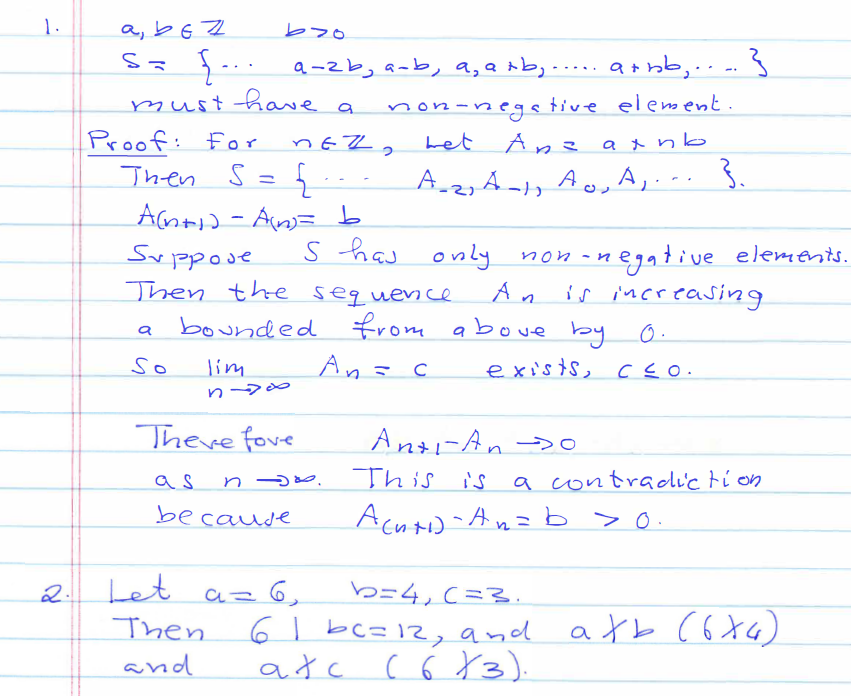 1. a, b ∈ ℤ b>0
S = { ... a-2b, a-b, a, a+b, ..... a+nb, .... }
must have a non-negative element.
Proof: For n ∈ ℤ, Let An = a + nb
Then S = { ... A-2, A-1, A0, A1 ... }.
A(n+1) - A(n) = b
Suppose S has only non-negative elements.
Then the sequence An is increasing
a bounded from above by 0.
So lim An = c exists, c ≤ 0.
n→∞
Therefore An+1 - An → 0
as n → ∞. This is a contradiction
because A(n+1) - An = b > 0.
2. Let a = 6, b=4, c=3.
Then 6 | bc = 12, and a ∤ b (6 ∤ 4)
and a ∤ c (6 ∤ 3).